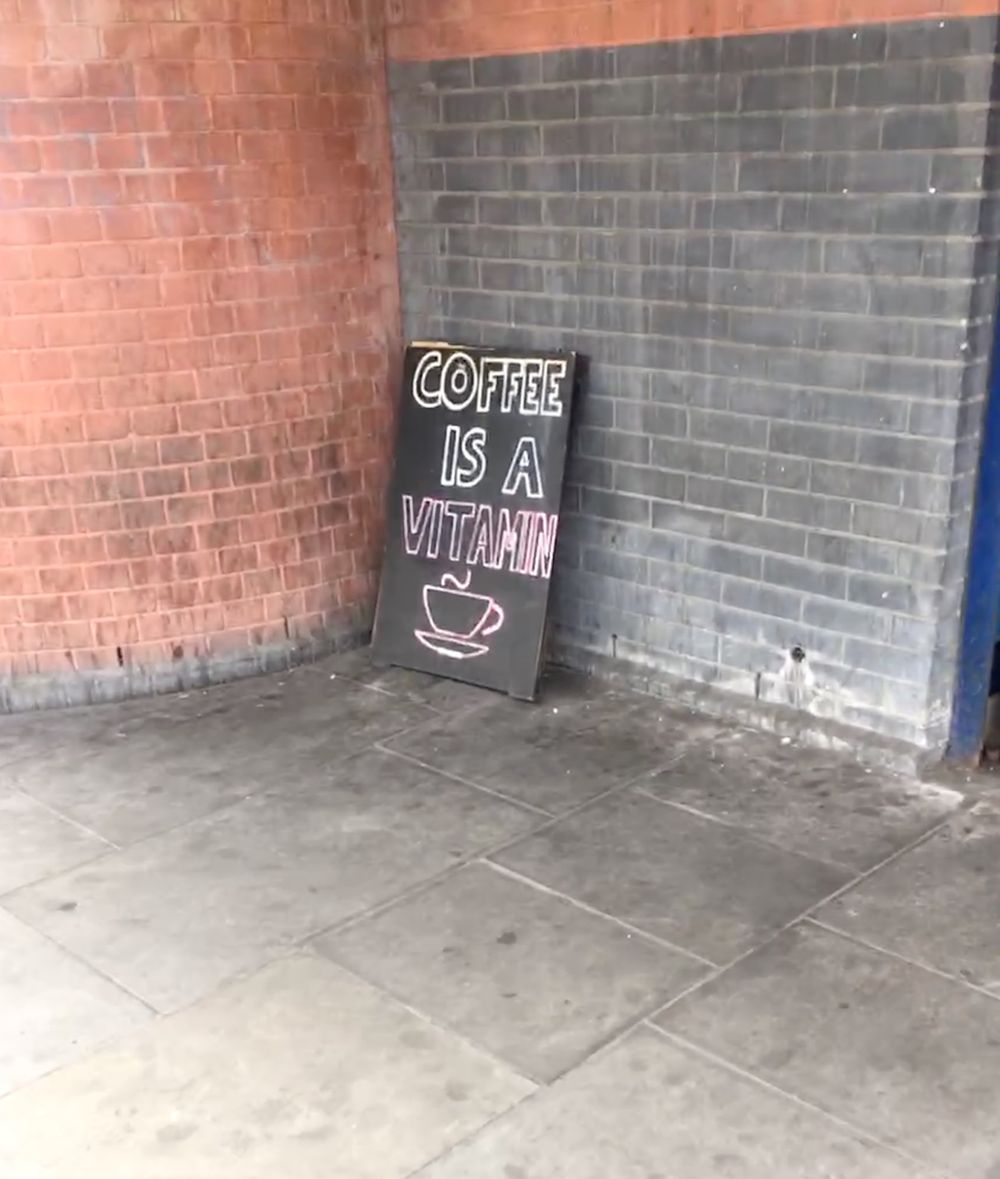 COFFEE
IS A
VITAMIN